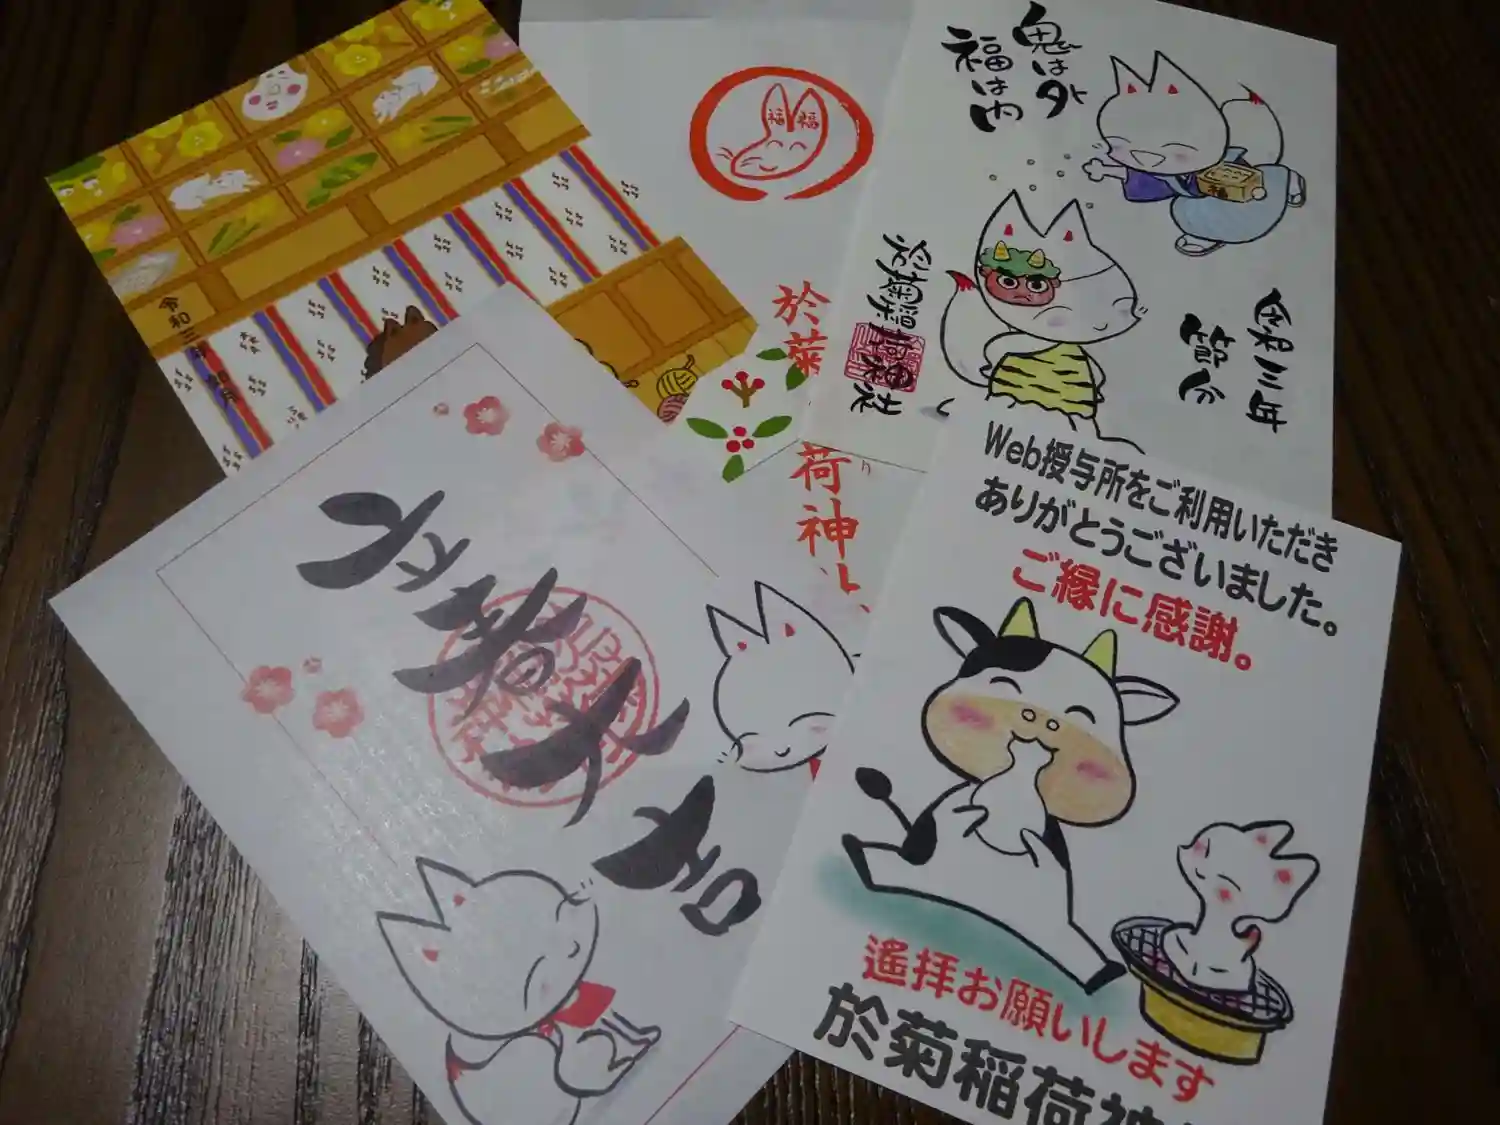 鬼は外
福は内
於菊稲荷神社
令和三年
節分
福
福
福
於菊
荷神
令和三年
如月
立春大吉
Web授与所をご利用いただき
ありがとうございました。
ご縁に感謝。
遙拝お願いします
於菊稲荷神